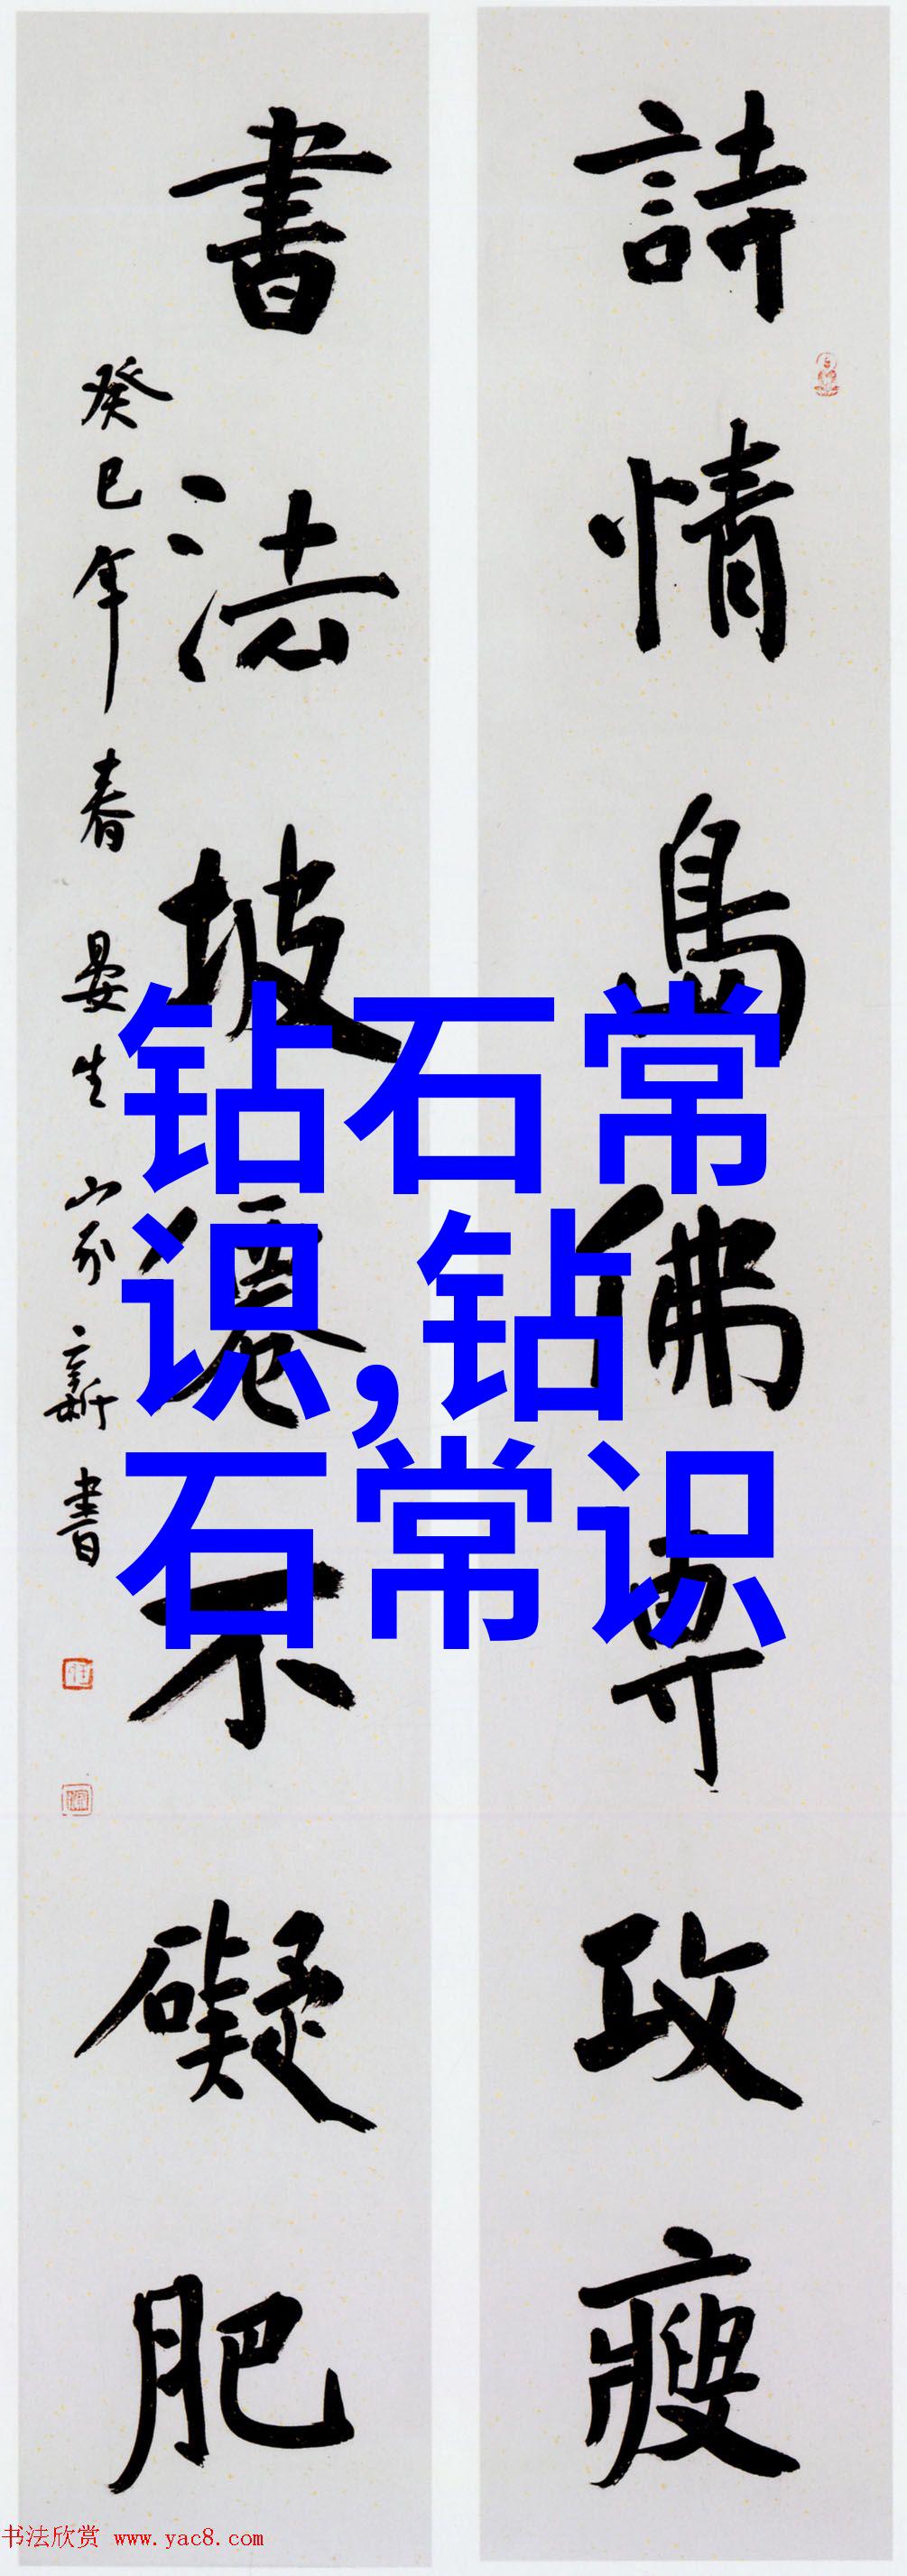 詩情島佛專攻瘦
書法坡僊不礙肥
癸巳年春晏生山新書
钻石常
识,钻
石常识
书法欣赏 www.yac8.com